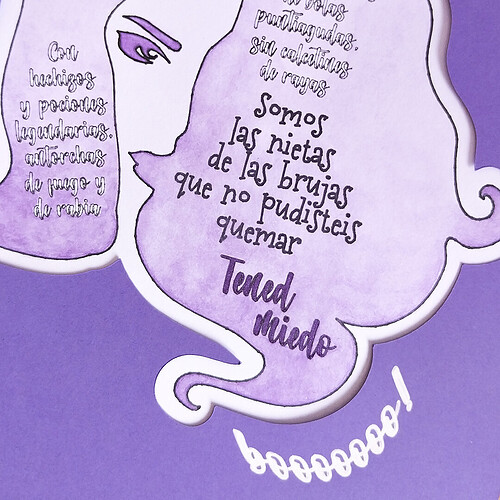 de bolas
puntiagudas,
sin calcetines
de rayas
Con
hechizos
y pociones
legendarias,
antorchas
de fuego y
de rabia
Somos
las nietas
de las brujas
que no pudisteis
quemar
Tened
miedo
booooooo!